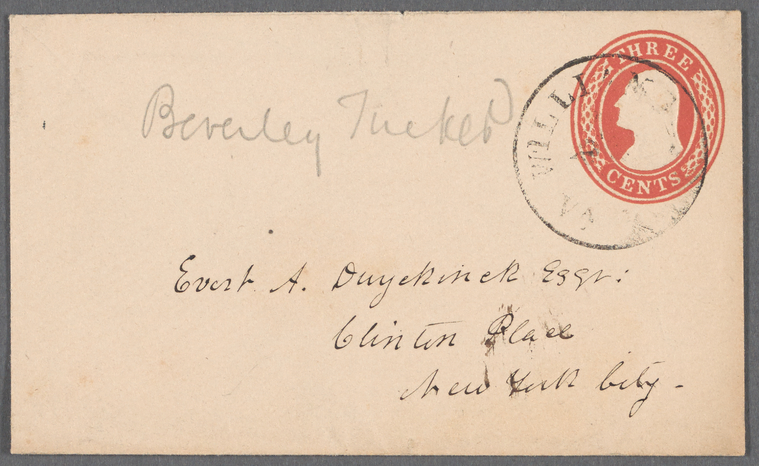 THREE
CENTS
WILLIAM
VA
Beverley Tucker
Evert A. Duyckinck Esqr:
Clinton Place
New York City-